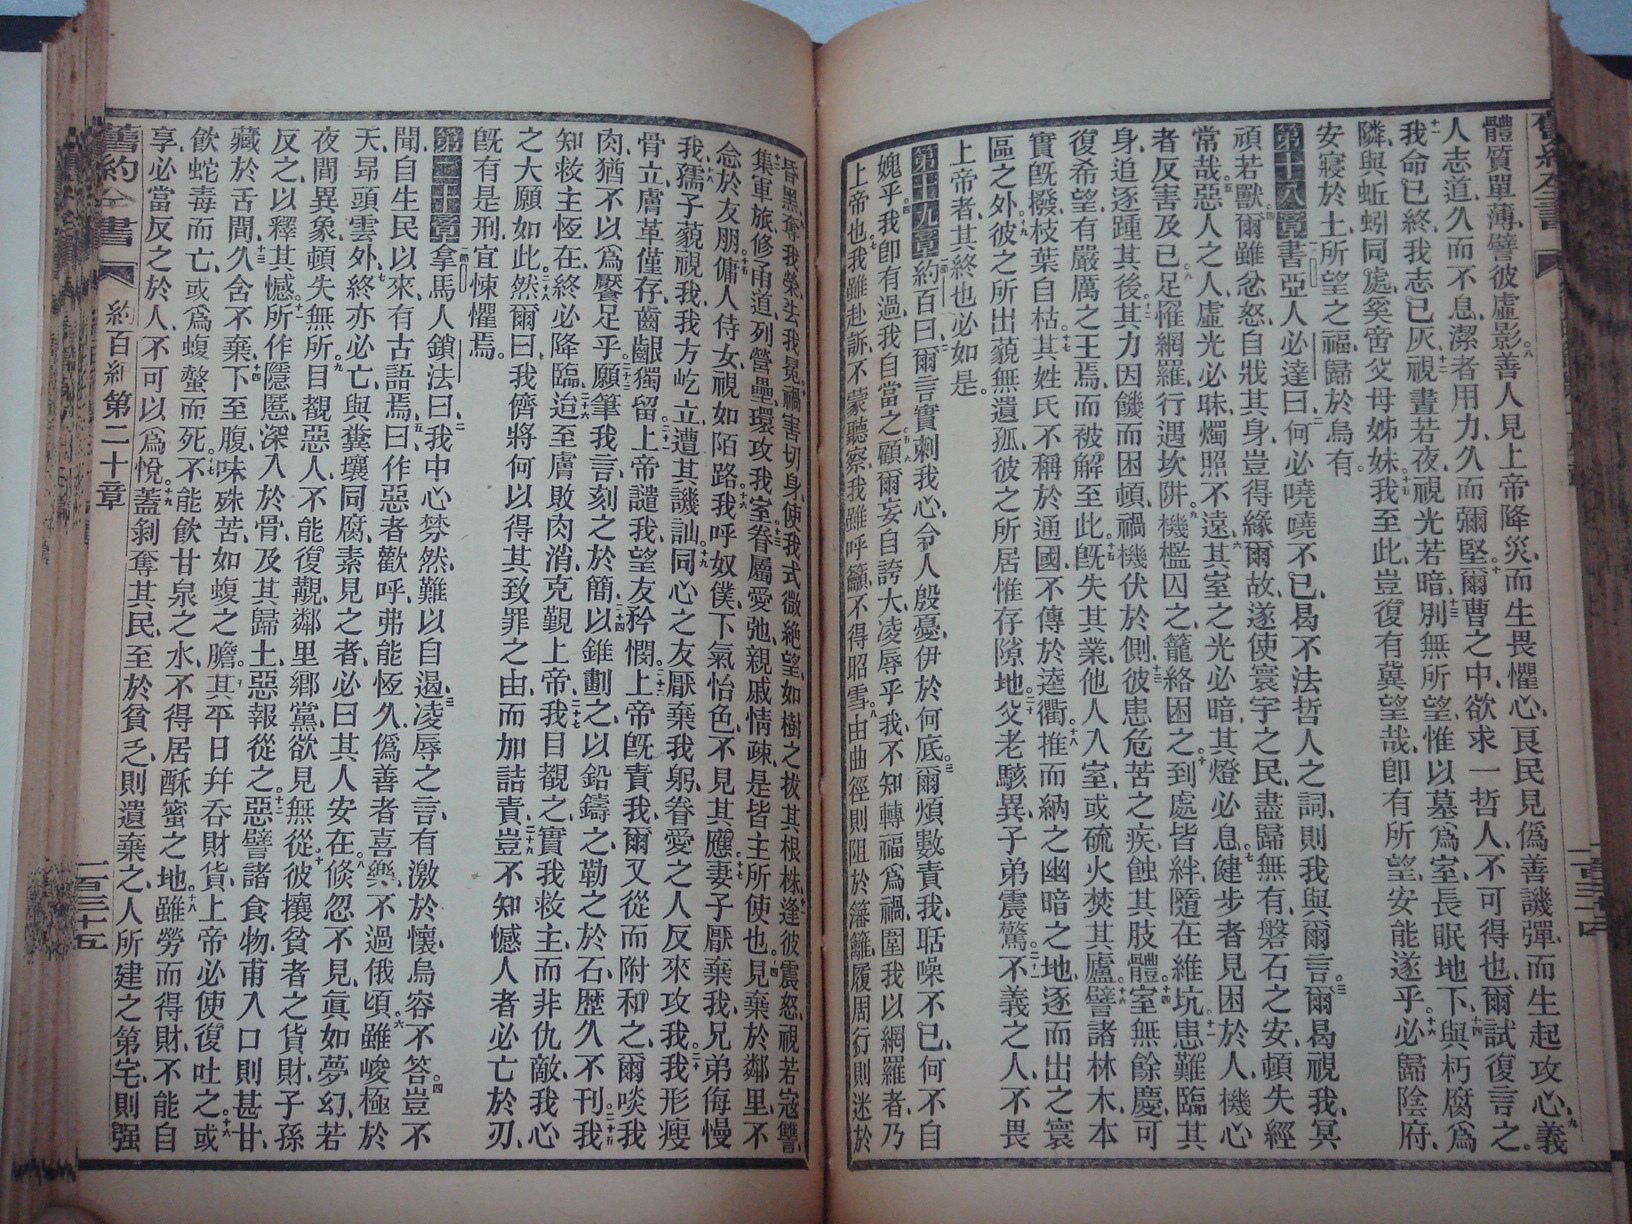 體質單薄、譬彼虛影、善人見上帝降災、而生畏懼心、良民見僞善譏彈、而生起攻心、義
人志道、久而不息、潔者用力、久而彌堅、爾曹之中、欲求一哲人、不可得也、爾試復言之、
我命已終、我志已灰、視晝若夜、視光若暗、別無所望、惟以墓爲室、長眠地下、與朽腐爲
隣、與蚯蚓同處、奚啻父母姊妹、我至此、豈復有冀望哉、即有所望、安能遂乎、必歸陰府、
安寢於土、所望之福、歸於烏有。
第十八章書亞人必達曰、何必嘵嘵不已、曷不法哲人之詞、則我與爾言、爾曷視我、冥
頑若獸、爾雖忿怒、自戕其身、豈得緣爾故、遂使寰宇之民、盡歸無有、磐石之安、頓失經
常哉、惡人之人、虛光必昧、燭照不遠、其室之光必暗、其燈必息、健步者見困於人、機心
者反害及已、足罹網羅、行遇坎阱、機檻囚之、籠絡困之、到處皆絆、隨在維坑、患難臨其
身、追逐踵其後、其力因饑而困頓、禍機伏於側、彼患危苦之疾、蝕其肢體、室無餘慶、可
復希望、有嚴厲之王焉、而被解至此、旣失其業、他人入室、或硫火焚其廬、譬諸林木、本
實旣撥、枝葉自枯、其姓氏不稱於通國、不傳於逵衢、推而納之幽暗之地、逐而出之寰
區之外、彼之所出、藐無遺孤、彼之所居、惟存隙地、父老駭異、子弟震驚、不義之人、不畏
上帝者、其終也必如是。
第十九章約百曰、爾言實刺我心、令人殷憂、伊於何底、爾煩數責我、聒噪不已、何不自
媿乎、我即有過、我自當之、顧爾妄自誇大、凌辱乎我、不知轉福爲禍、圍我以網羅者、乃
上帝也、我雖赴訴、不蒙聽察、我雖呼籲、不得昭雪、由曲徑則阻於籓籬、履周行則迷於
昏黑、奪我榮、去我冕、禍害切身、使我式微絶望、如樹之拔其根株、逢彼震怒、視若寇讐、
集軍旅、修甬道、列營壘、環攻我室、眷屬愛弛、親戚情疎、是皆主所使也、見棄於鄰里、不
念於友朋、傭人侍女、視如陌路、我呼奴僕、下氣怡色、不見其應、妻子厭棄我、兄弟侮慢
我、孺子藐視我、我方屹立、遭其譏訕、同心之友、厭棄我躬、眷愛之人、反來攻我、我形瘦
骨立、膚革僅存、齒齦獨留、上帝譴我、望友矜憫、上帝旣責我、爾又從而附和之、爾啖我
肉、猶不以爲饜足乎、願筆我言、刻之於簡、以錐劃之、以鉛鑄之、勒之於石、歷久不刊、我
知救主恆在、終必降臨、迨至膚敗肉消、克覲上帝、我目覩之、實我救主、而非仇敵、我心
之大願如此、然爾曰、我儕將何以得其致罪之由、而加詰責、豈不知憾人者、必亡於刃、
旣有是刑、宜悚懼焉。
第二十章拿馬人鎖法曰、我中心棼然、難以自遏、凌辱之言、有激於懷、烏容不答、豈不
聞自生民以來、有古語焉、曰作惡者歡呼、弗能恆久、僞善者喜樂、不過俄頃、雖峻極於
天、昂頭雲外、終亦必亡、與糞壤同腐、素見之者、必曰其人安在、倏忽不見、眞如夢幻、若
夜間異象、頓失無所、目覩惡人、不能復覯、鄰里鄉黨、欲見無從、彼攘貧者之貨財、子孫
反之、以釋其憾、所作隱慝、深入於骨、及其歸土、惡報從之、惡譬諸食物、甫入口則甚甘、
藏於舌間、久含不棄、下至腹、味殊苦、如蝮之膽、其平日幷吞財貨、上帝必使復吐之、或
飲蛇毒而亡、或爲蝮螫而死、不能飲甘泉之水、不得居酥蜜之地、雖勞而得財、不能自
享、必當反之於人、不可以爲悅、蓋剝奪其民、至於貧乏、則遺棄之、人所建之第宅、則强
舊約全書 約百紀第二十章 一百三十五